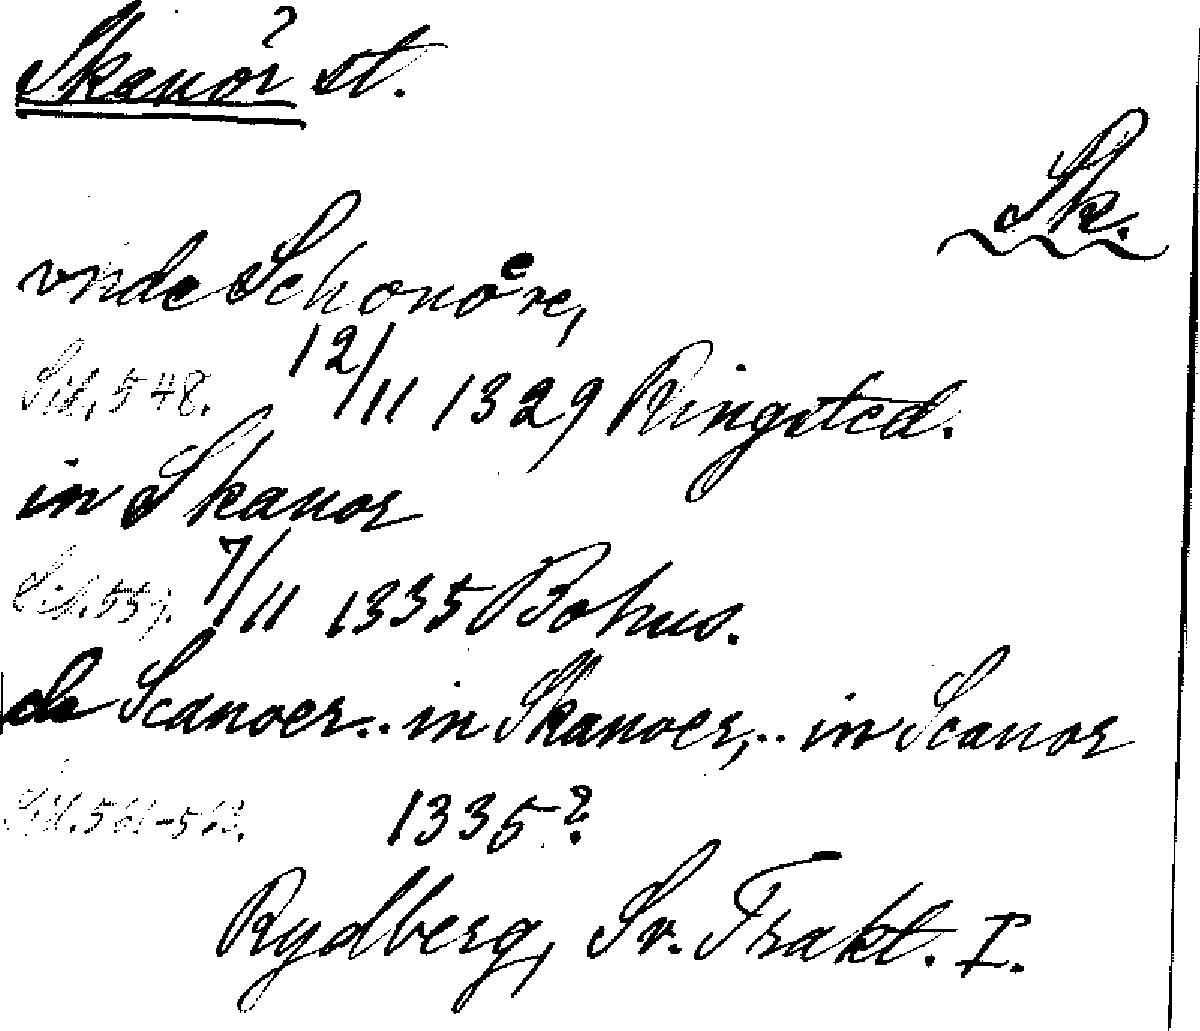 Skanör st.
Sk.
vnde Schonoͤre,
Sid. 548. 12/11 1329 Ringsted.
in Skanor
Sid. 557. 7/11 1335 Bohus.
de Scanoer.. in Skanoer,.. in Scanor
Sid. 561-563. 1335?
Rydberg, Sv. Trakt. I.